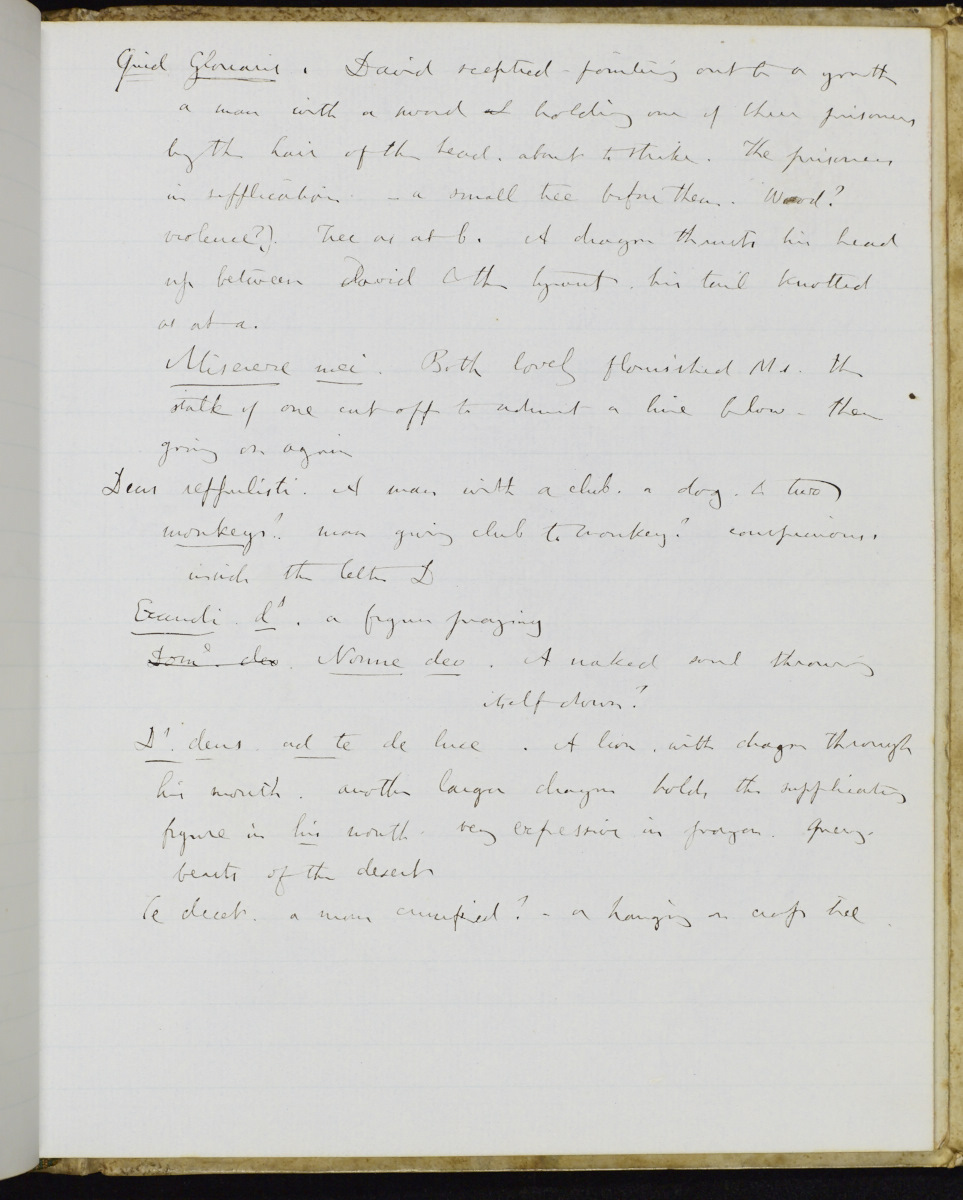 Quid Gloriaris. David sceptred - pointing out to a youth
a man with a sword & holding one of three prisoners
by the hair of the head. about to strike. The prisoners
in supplication. - a small tree before them. Wood?
violence?). Tree as at b. A dragon thrusts his head
up between David & the tyrant. his tail knotted
as at a.
Miserere mei. Both lovely flourished Ms. the
stalk of one cut off to admit a line below - then
going on again
Deus reppulisti. A man with a club. a dog. & two
monkeys? man giving club to monkey? conspicuous.
inside the letter D
Exaudi. ds. a figure praying
Domo. deo. Nonne deo. A naked soul throwing
itself down?
Ds. deus ad te de luce. A lion. with dragon through
his mouth. another larger dragon holds the supplicating
figure in his mouth. very expressive in prayer. Query.
beasts of the desert
Te decet. a man crucified? - or hanging on cross tree.